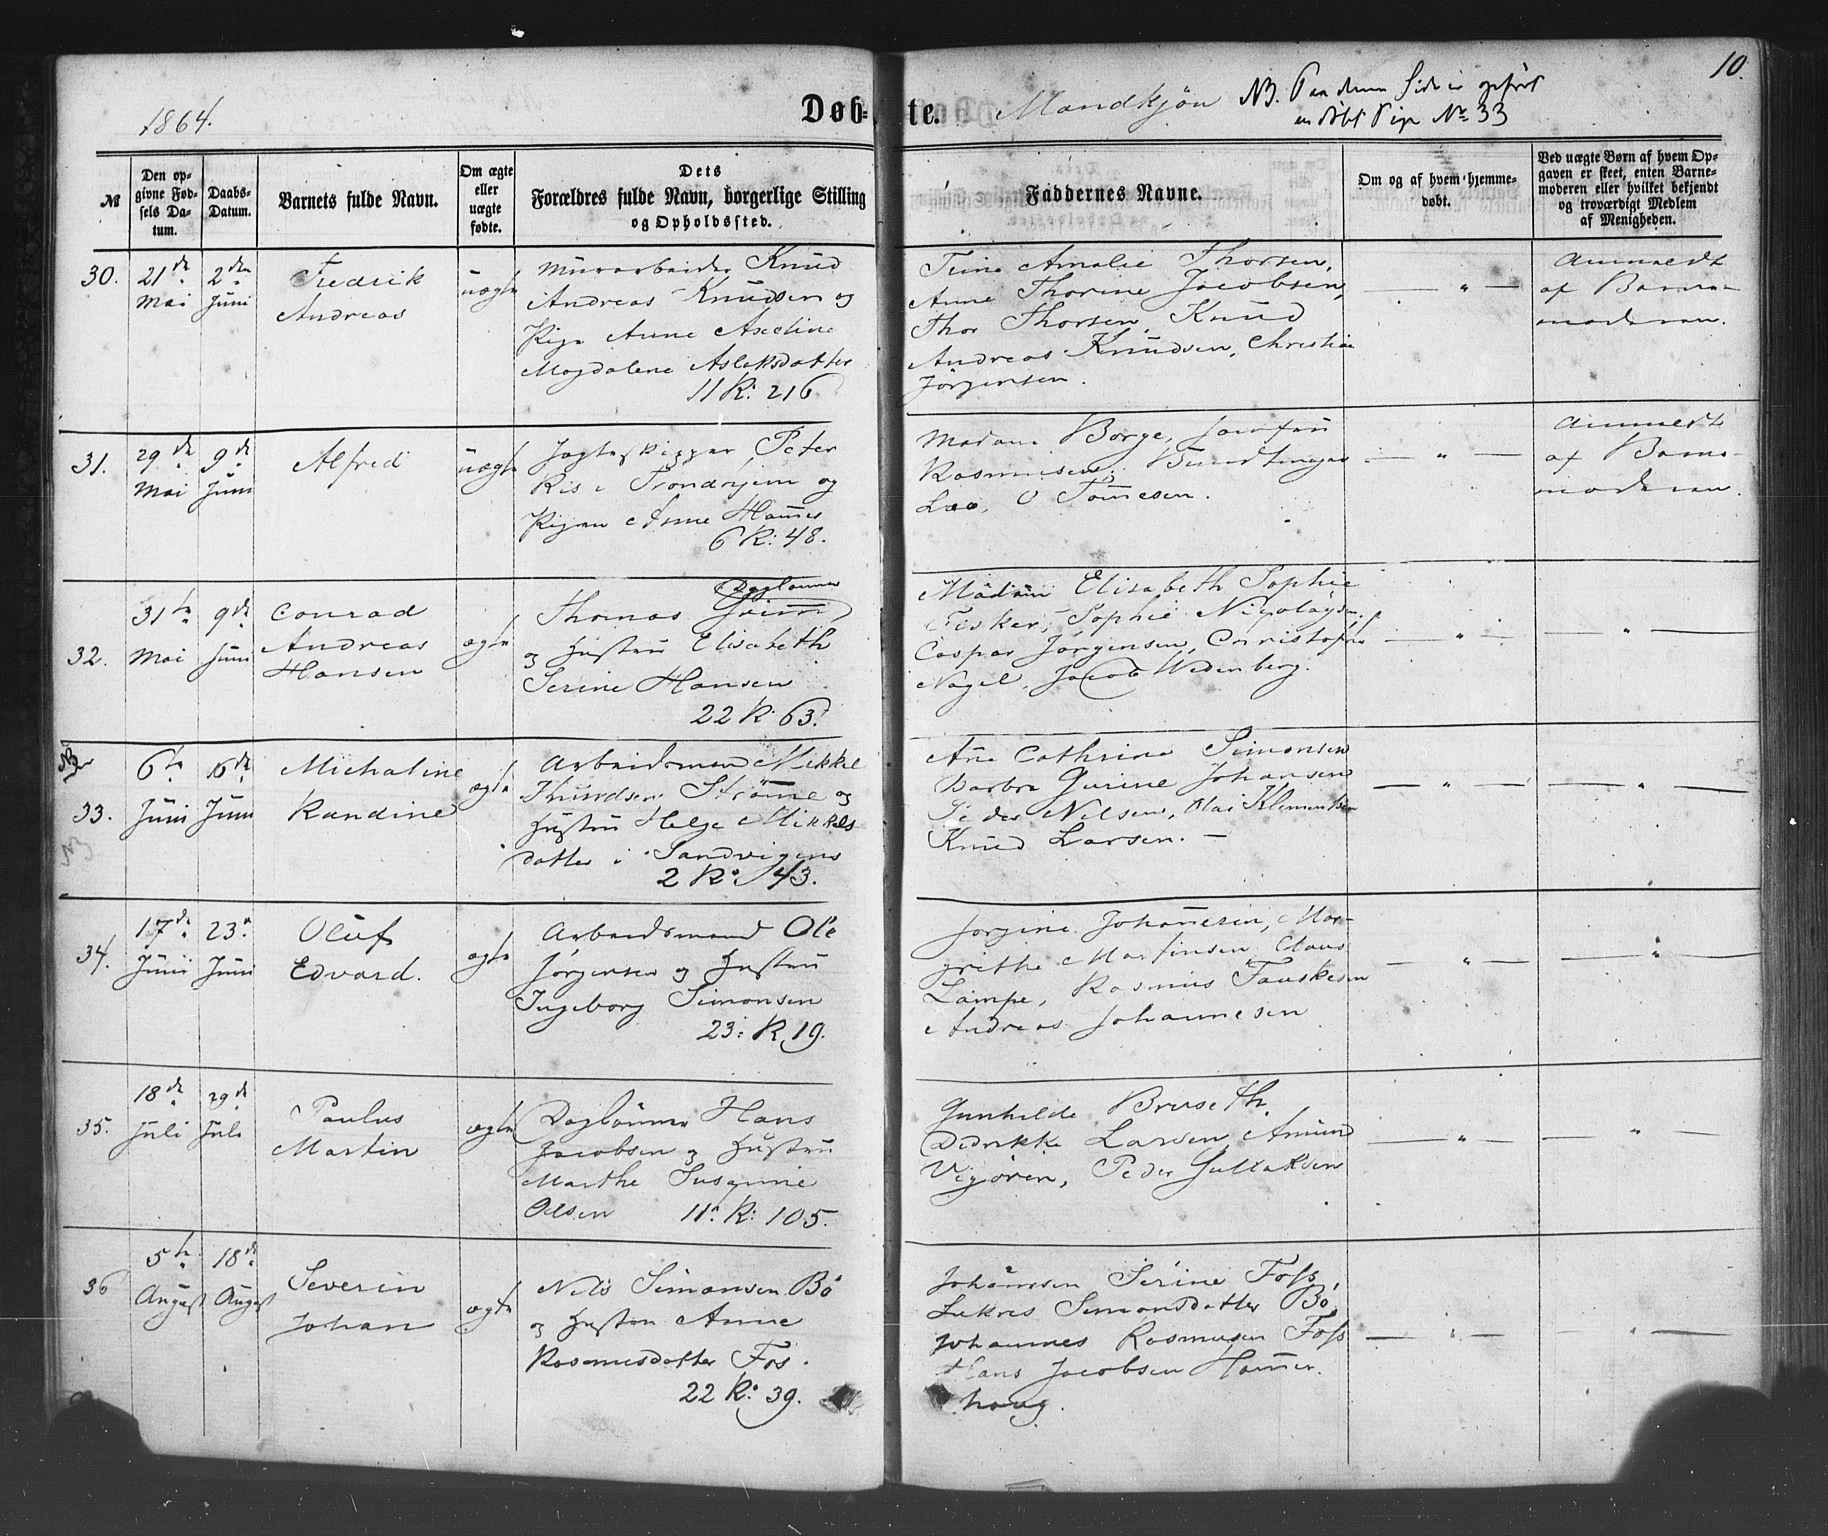 10.
1864.
Døbte. Mandkjøn NB. Paa denne Side er opført
en døbt Pige No 33
№
Den opgivne Fødsels Datum.
Daabs-Datum.
Barnets fulde Navn.
Om ægte eller uægte fødte.
Dets Forældres fulde Navn, borgerlige Stilling og Opholdssted.
Faddernes Navne.
Om og af hvem hjemmedøbt.
Ved uægte Børn af hvem Opgaven er skeet, enten Barnemoderen eller hvilket bekjendt og troværdigt Medlem af Menigheden.
30.
21de Mai
2den Juni
Fredrik
Andreas
uægte
Murarbeider Knud
Andreas Knudsen og
Pige Anne Axeline
Magdalene Aslaksdatter
11 K: 216
Trine Amalie Thorsen,
Anne Thorine Jacobsen,
Thor Thorsen, Knud
Andreas Knudsen, Christian
Jørgensen.
— " —
Anmeldt
af Barne-
moderen.
31.
29de Mai
9de Juni
Alfred
uægte
Jagteskipper Peter
Ris i Trondhjem og
Pigen Anne
6 K: 48.
Madam Borge, Jomfru
Rasmusen,
O Tønnesen.
— " —
Anmeldt
af Barne-
moderen.
32.
31te Mai
9de Juni
Conrad
Andreas
Hansen
ægte
Daglønner
Thomas
og Hustru Elisabeth
Serine Hansen
22 K: 63.
Madam Elisabeth Sophie
Fisker, Sophie Nicolaysen,
Caspar Jørgensen, Christofer
Nagel, Jacob Wedenberg.
— " —
— " —
NB
33.
NB
6te Juni
16de Juni
Michaline
Randine
ægte
Arbeidsmand Mikkel
Knudsen Strømme og
Hustru Helge Mikkels
datter i Sandvigens
2 K: 143.
Ane Cathrine Simonsen
Barbra Gurine Johansen
Peder Nilsen, Olai Klementsen
Knud Larsen. —
— " —
— " —
34.
17de Juni
23. Juni
Oluf
Edvard.
ægte
Arbeidsmand Ole
Jørgensen og Hustru
Ingeborg Simonsen
23: K. 19.
Jorgine Johannesen, Mar-
grethe Martinsen, Claus
Lampe, Rasmus Fauskesen
Andreas Johannesen
— " —
— " —
35.
18de Juli
29de Juli
Paulus
Martin
ægte
Daglønner Hans
Jacobsen og Hustru
Marthe Susanne
Olsen 11. K: 105.
Gunhilde Bruseth.
Didrikke Larsen, Amund
Vigøren, Peder Gullaksen
— " —
— " —
36
5te August
18de August
Severin
Johan
ægte
Nils Simonsen Bø
og Hustru Anne
Rasmusdatter Fos.
22 K: 39.
Johannesen Serine Foss,
Simonsdatter Bø,
Johannes Rasmusen Foss
Hans Jacobsen Hammer-
houg.
— " —
— " —